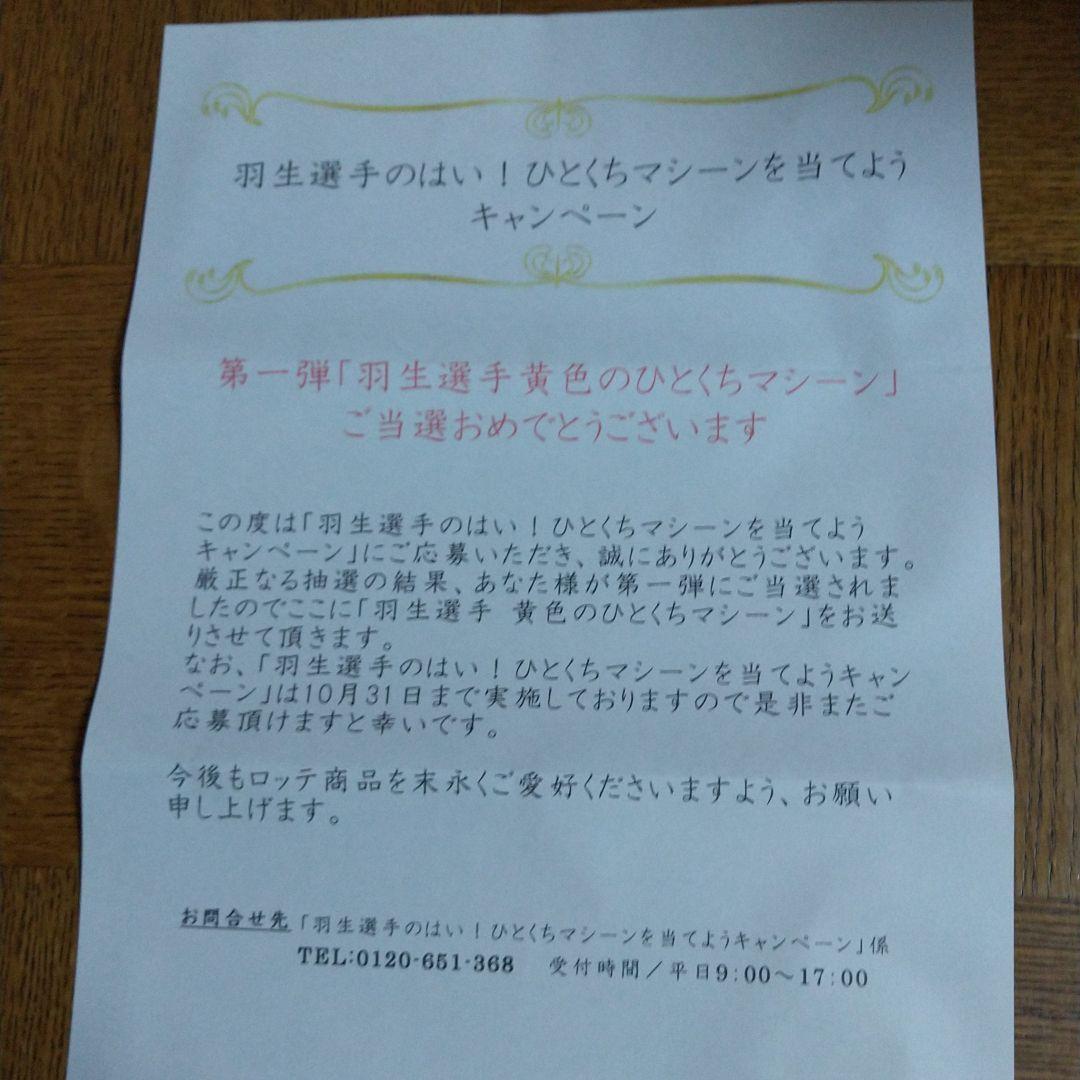 羽生選手のはい！ひとくちマシーンを当てよう
キャンペーン
第一弾「羽生選手黄色のひとくちマシーン」
ご当選おめでとうございます
この度は「羽生選手のはい！ひとくちマシーンを当てよう
キャンペーン」にご応募いただき、誠にありがとうございます。
厳正なる抽選の結果、あなた様が第一弾にご当選されま
したのでここに「羽生選手 黄色のひとくちマシーン」をお送
りさせて頂きます。
なお、「羽生選手のはい！ひとくちマシーンを当てようキャン
ペーン」は10月31日まで実施しておりますので是非またご
応募頂けますと幸いです。
今後もロッテ商品を末永くご愛好くださいますよう、お願い
申し上げます。
お問合せ先「羽生選手のはい！ひとくちマシーンを当てようキャンペーン」係
TEL:0120-651-368 受付時間／平日9:00～17:00